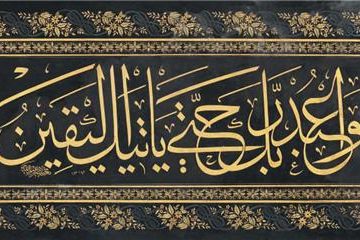 واعبد ربك حتى يأتيك اليقين